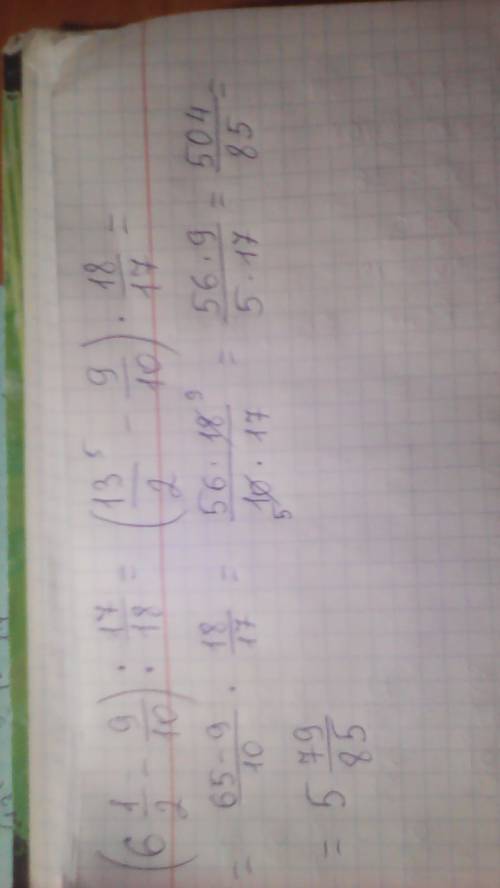 (6 1/2 - 9/10) : 17/18 = (13⁵/2 - 9/10) · 18/17 =
= 65-9/10 · 18/17 = 56·18⁹/10₅·17 = 56·9/5·17 = 504/85 =
= 5 79/85